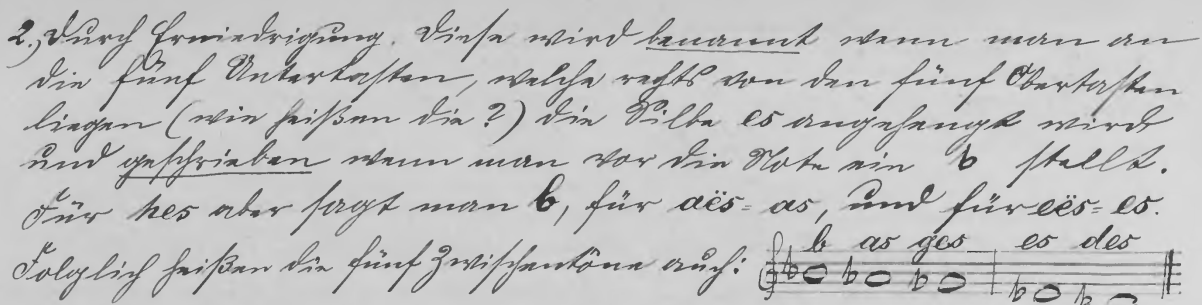 2., Durch Erniedrigung. Diese wird benannt wenn man an
die fünf Untertasten, welche rechts von den fünf Obertasten
liegen (wie heißen die?) die Silbe es angehengt wird
und geschrieben wenn man vor die Note ein ♭ stellt.
Für hes aber sagt man b, für aës = as, und für eës = es.
b as ges es des
Folglich heißen die fünf Zwischentöne auch: